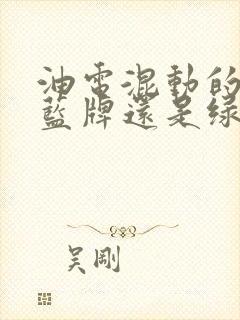 油电混動的
藍牌還是绿
吴剛